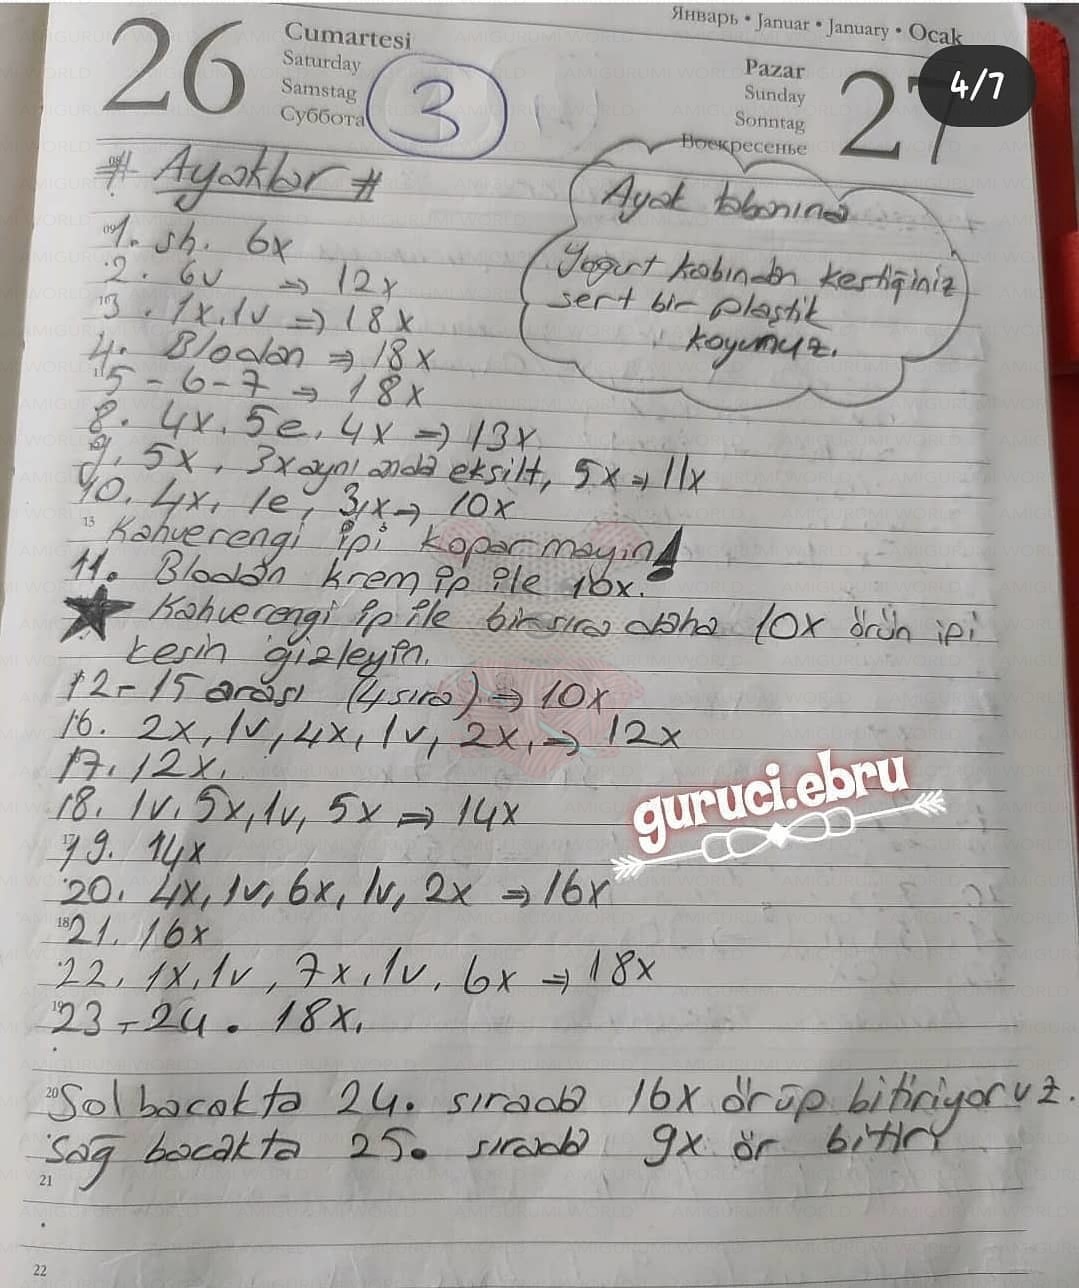 Январь • Januar • January • Ocak
26
Cumartesi
Saturday
Samstag
Суббота
3
Pazar
Sunday
Sonntag
Воскресенье
27
4/7
# Ayaklar #
Ayak tabanına
Yogurt kabından kestiğiniz
sert bir plastik
koyunuz.
1. sh. 6x
2. 6v => 12x
3. 1x.1v => 18x
4. Blodan => 18x
5-6-7 => 18x
8. 4x, 5e, 4x => 13x
9. 5x, 3x aynı anda eksilt, 5x => 11x
10. 4x, 1e, 3x => 10x
Kahverengi ipi koparmayın!
11. Blodan krem ip ile 10x.
★ Kahverengi ip ile bir sıra daha 10x örün ipi
kesin gizleyin.
12-15 arası (4 sıra) => 10x
16. 2x, 1v, 4x, 1v, 2x, => 12x
17. 12x.
18. 1v, 5x, 1v, 5x => 14x
19. 14x
20. 4x, 1v, 6x, 1v, 2x => 16x
21. 16x
22. 1x, 1v, 7x, 1v, 6x => 18x
23-24. 18x.
guruci.ebru
Sol bacakta 24. sırada 16x örüp bitiriyoruz.
Sağ bacakta 25. sırada 9x ör bitir
13
18
19
20
21
22